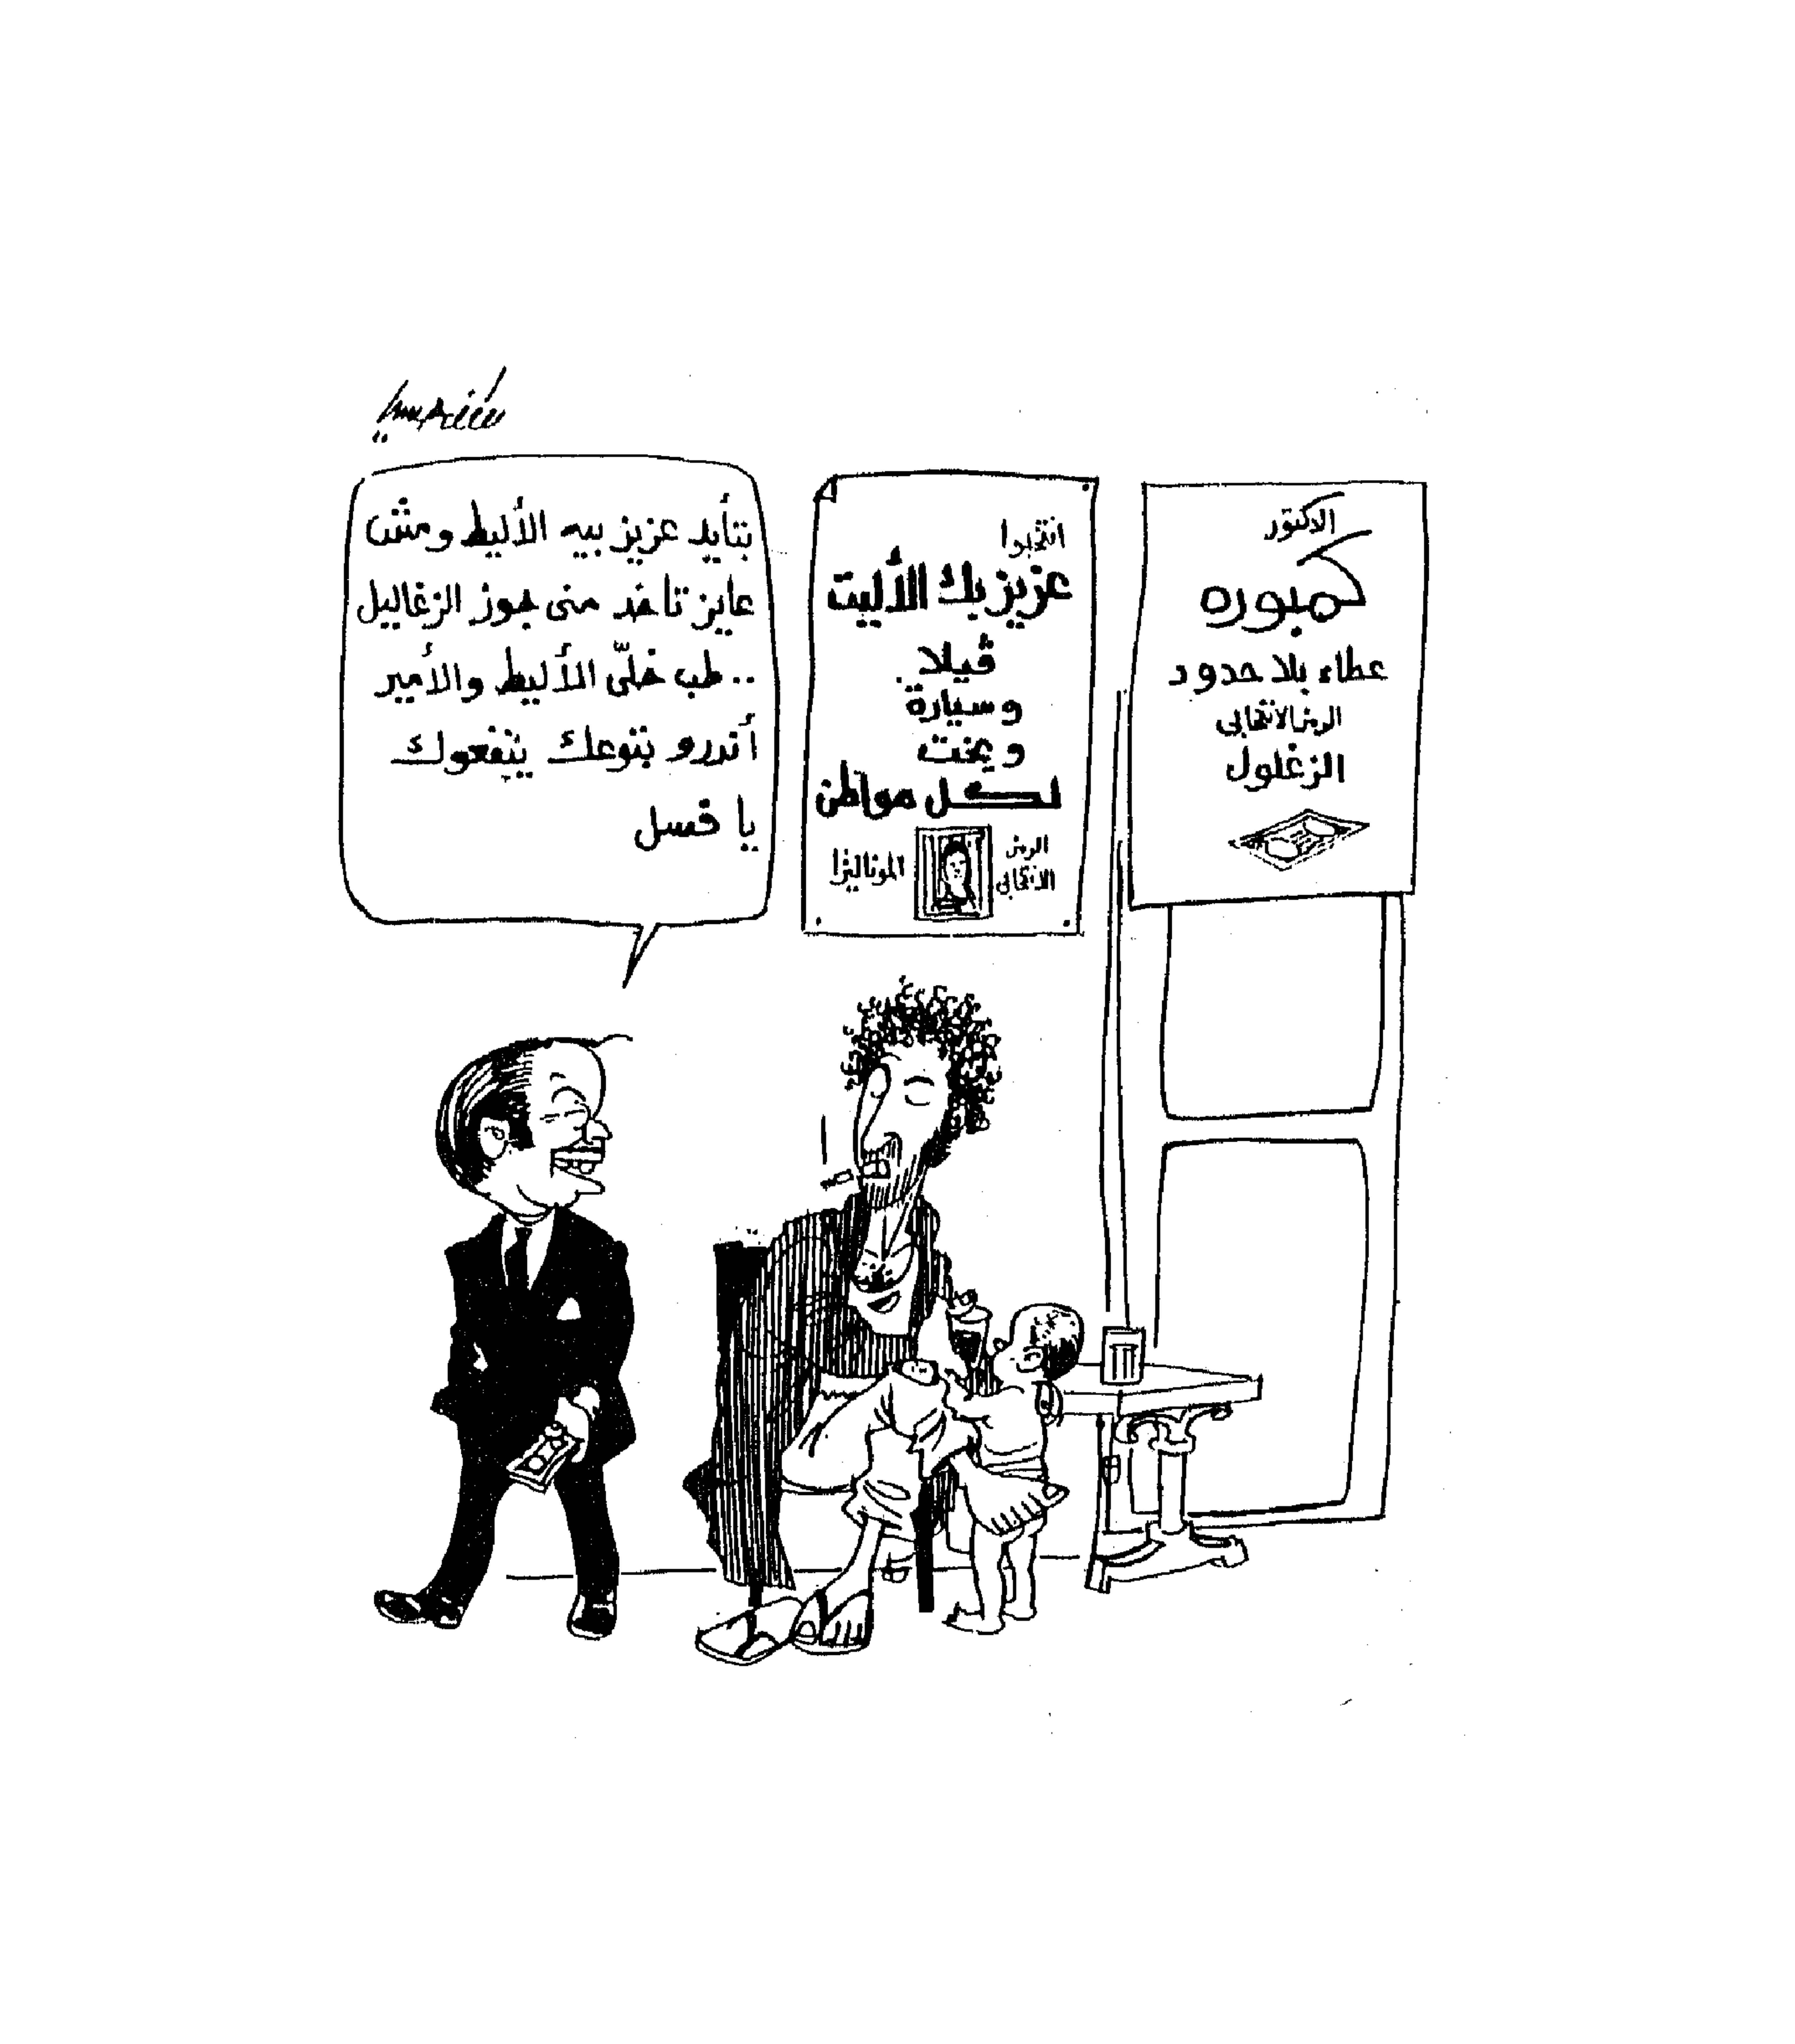 الدكتور
كمبوره
عطاء بلا حدود
الرمز الانتخابي
الزغلول
انتخبوا
عزيز بك الأليت
ڤيلا
وسيارة
ويخت
لكل مواطن
الرمز
الانتخابي
الموناليزا
بتأيد عزيز بيه الأليط ومش
عايز تاخد منى جوز الزغاليل
.. طب خلّى الأليط والأمير
أندرو بتوعك ينفعوك
يا فسل